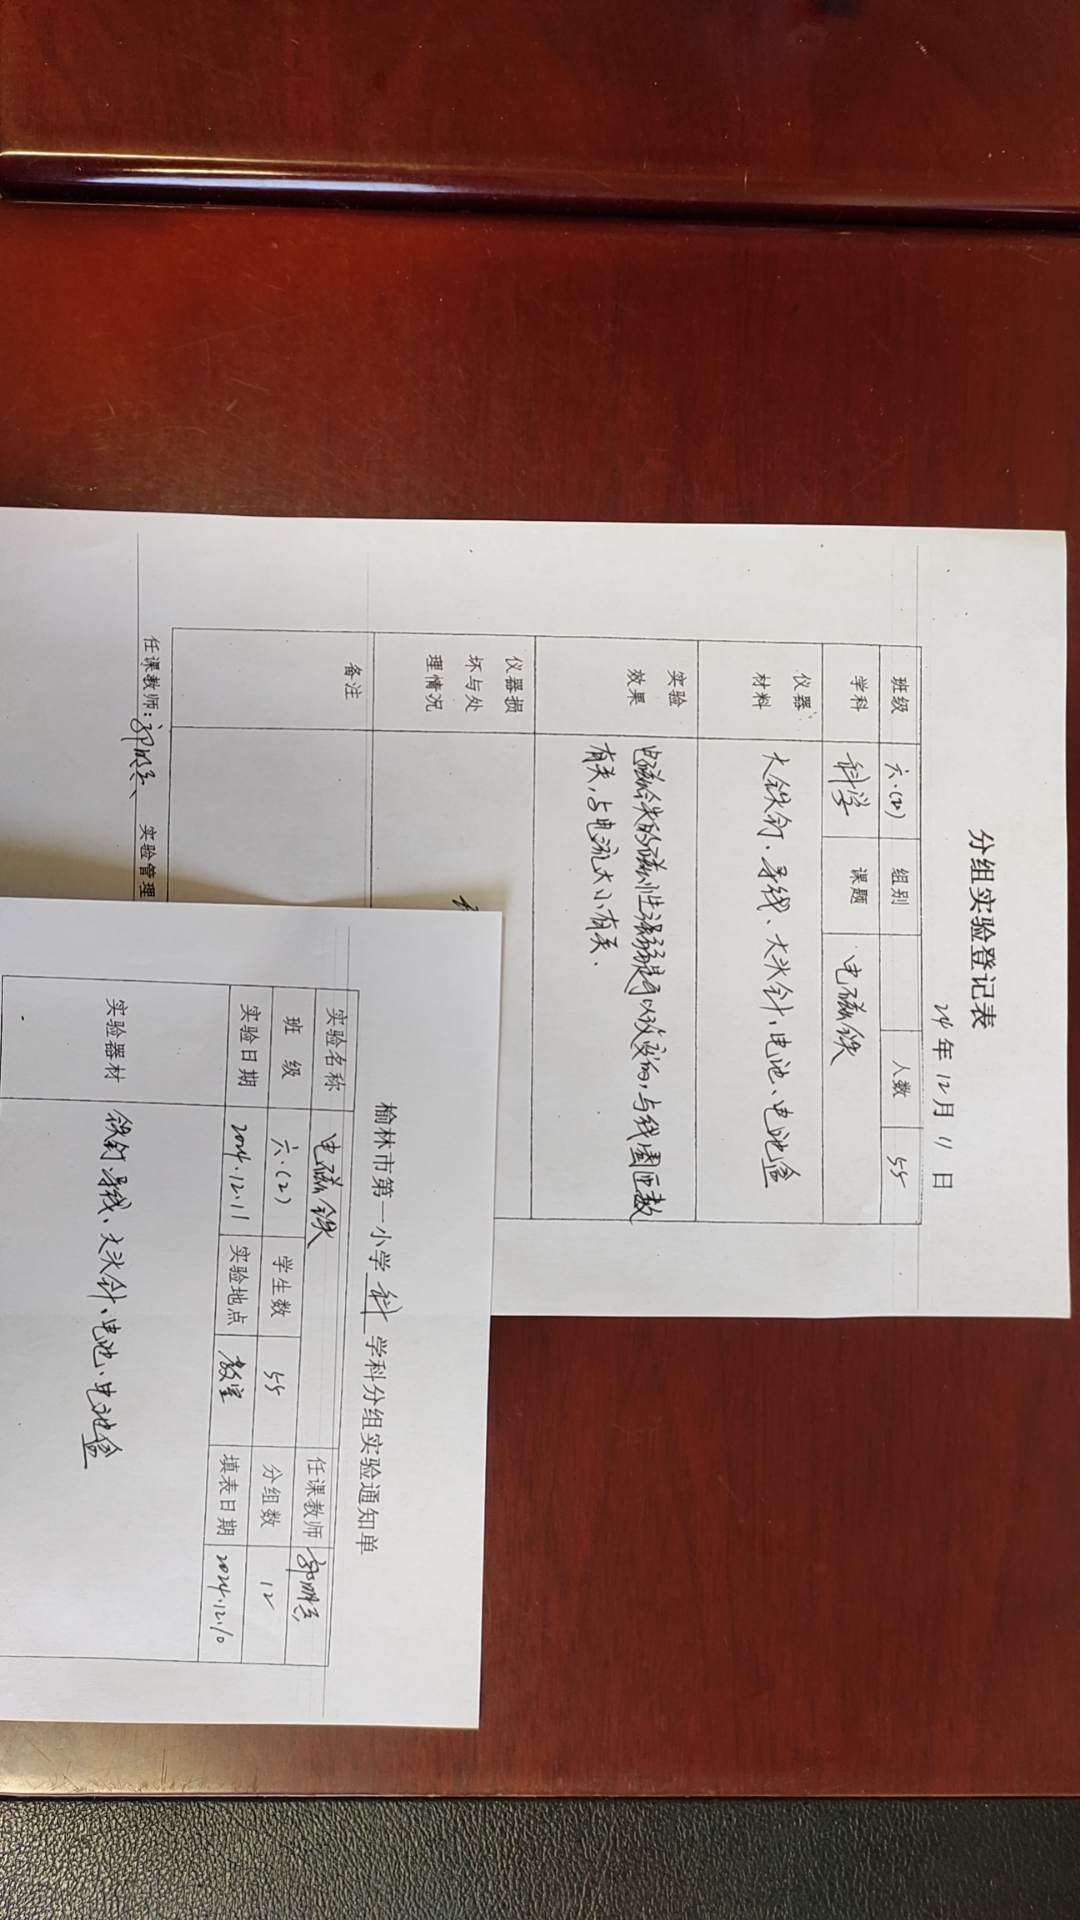 分组实验登记表
24年12月11日
班级 六.(2) 组别 人数 55
学科 科学 课题 电磁铁
仪器 材料 大铁钉、导线、大头针、电池、电池盒
实验 效果 电磁铁的磁性强弱是可以改变的,与线圈匝数
有关,与电流大小有关.
仪器损
坏与处
理情况
备注
任课教师: 实验管理
榆林市第一小学 科 学科分组实验通知单
实验名称 电磁铁 任课教师
班 级 六.(2) 学生数 55 分组数 12
实验日期 2024.12.11 实验地点 教室 填表日期 2024.12.10
实验器材 铁钉、导线、大头针、电池、电池盒